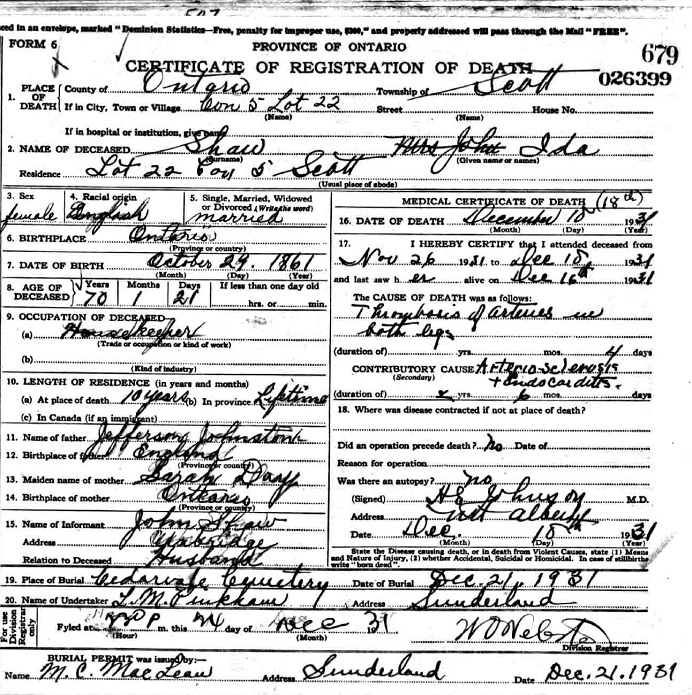 ced in an envelope, marked "Dominion Statistics—Free, penalty for improper use, $300," and properly addressed will pass through the Mail "FREE".
FORM 6
PROVINCE OF ONTARIO
679
CERTIFICATE OF REGISTRATION OF DEATH
026399
1. PLACE OF DEATH County of Ontario Township of Scott
If in City, Town or Village Con 5 Lot 22 Street House No.
(Name) (Name)
If in hospital or institution, give name
2. NAME OF DECEASED Shaw Mrs John Ida
(Surname) (Given name or names)
Residence Lot 22 Con 5 Scott
(Usual place of abode)
3. Sex female
4. Racial origin English
5. Single, Married, Widowed or Divorced (Write the word) married
6. BIRTHPLACE Ontario
(Province or country)
7. DATE OF BIRTH October 29. 1861
(Month) (Day) (Year)
8. AGE OF DECEASED Years 70 Months 1 Days 21 If less than one day old
hrs. or min.
9. OCCUPATION OF DECEASED
(a) Housekeeper
(Trade or occupation or kind of work)
(b)
(Kind of industry)
10. LENGTH OF RESIDENCE (in years and months)
(a) At place of death 10 years (b) In province Lifetime
(c) In Canada (if an immigrant)
11. Name of father Jefferson Johnston
12. Birthplace of father England
(Province or country)
13. Maiden name of mother Sarah
14. Birthplace of mother Ontario
(Province or country)
15. Name of Informant John Shaw
Address Uxbridge
Relation to Deceased Husband
MEDICAL CERTIFICATE OF DEATH (18th)
16. DATE OF DEATH December 18 1931
(Month) (Day) (Year)
17. I HEREBY CERTIFY that I attended deceased from
Nov 26 1931 to Dec 18 1931
and last saw her alive on Dec 16th 1931
The CAUSE OF DEATH was as follows:
Thrombosis of arteries in
both legs
(duration of) yrs. mos. 4 days
CONTRIBUTORY CAUSE Arterio-sclerosis
(Secondary) + Endocarditis.
(duration of) yrs. 6 mos. days
18. Where was disease contracted if not at place of death?
Did an operation precede death? no Date of
Reason for operation
Was there an autopsy? no
(Signed) H E Johnson M.D.
Address Mt Albert
Date Dec. 18 1931
(Month) (Day) (Year)
State the Disease causing death, or in death from Violent Causes, state (1) Means and Nature of Injury, (2) whether Accidental, Suicidal or Homicidal. In case of stillbirths write "born dead".
19. Place of Burial Cedarvale Cemetery Date of Burial Dec. 21, 1931
20. Name of Undertaker L. M. Pinkham Address Sunderland
For use Division Registrar only
Fyled at m. this day of Dec 1931
(Hour) (Month)
W D Webster
Division Registrar
BURIAL PERMIT was issued by:—
Name M. C. MacLean Address Sunderland Date Dec. 21. 1931